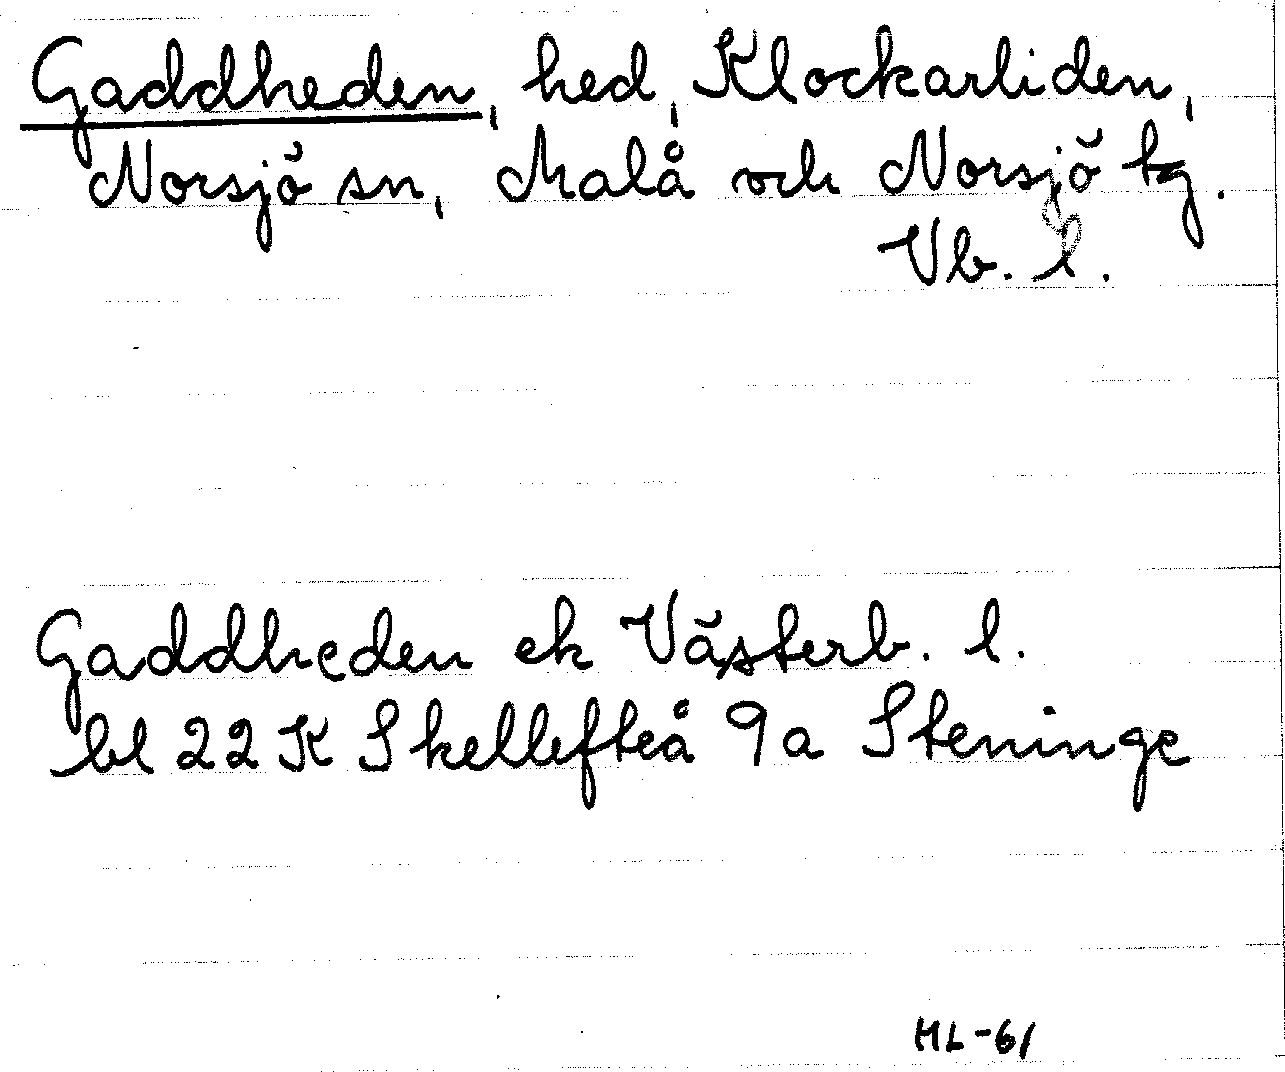 Gaddheden, hed, Klockarliden,
Norsjö sn, Malå och Norsjö tg.
Vb. l.
Gaddheden ek Västerb. l.
bl 22 K Skellefteå 9a Steninge
HL-61